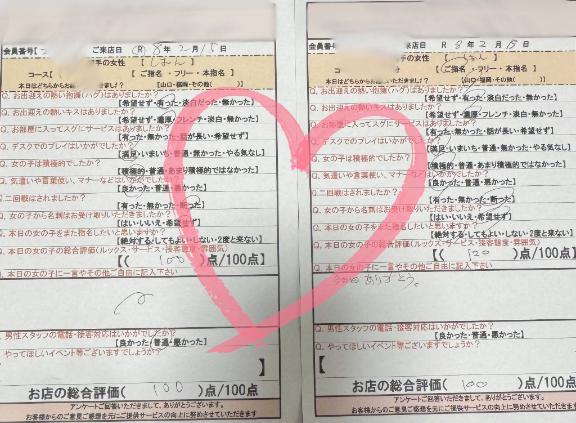 会員番号【
ご来店日 (R) 8年 2月 15日
手の女性 【しおん】
コース【 【ご指名・フリー・本指名】
本日はどちらからお 【山口・福岡・その他( )】
Q. お出迎えの熱い抱擁(ハグ)はありましたか?
【希望せず・有った・淡白だった・無かった】
Q. お出迎えの熱いキスはありましたか?
【希望せず・濃厚・フレンチ・淡白・無かった】
Q. お部屋に入ってスグにサービスはありましたか?
【有った・無かった・話が長い・希望せず】
Q. デスクでのプレイはいかがでしたか?
【満足・いまいち・普通・無かった・やる気なし】
Q. 女の子は積極的でしたか?
【積極的・普通・あまり積極的ではなかった】
Q. 気遣いや言葉使い、マナーなどはいかがでしたか?
【良かった・普通・悪かった】
Q. 二回戦はされましたか?
【有った・無かった・断った】
Q. 女の子から名刺はお受け取りいただきましたか?
【はい・いいえ・希望せず】
Q. 本日の女の子をまた指名したいと思いますか?
【絶対する・してもよい・しない・2度と来ない】
Q. 本日の女の子の総合評価(ルックス・サービス・接客態度・雰囲気)
【( 100 )点/100点】
Q. 本日の女の子に一言やその他ご自由に記入下さい
Q. 男性スタッフの電話・接客対応はいかがでしたか?
【良かった・普通・悪かった】
Q. やってほしいイベント等ございますでしょうか?
】
お店の総合評価( 100 )点/100点
アンケートご回答いただきまして、ありがとうございます。
お客様からのご意見ご感想を元にご提供サービスの向上に努めさせていただきます
会員番号
ご来店日 R 8年 2月 15日
女性
【ご指名・フリー・本指名】
本日はどちらからお (山口・福岡・その他( ))
Q. お出迎えの熱い抱擁(ハグ)はありましたか?
【希望せず・有った・淡白だった・無かった】
Q. お出迎えの熱いキスはありましたか?
【希望せず・濃厚・フレンチ・淡白・無かった】
Q. お部屋に入ってスグにサービスはありましたか?
【有った・無かった・話が長い・希望せず】
Q. デスクでのプレイはいかがでしたか?
【満足・いまいち・普通・無かった・やる気なし】
Q. 女の子は積極的でしたか?
【積極的・普通・あまり積極的ではなかった】
Q. 気遣いや言葉使い、マナーなどはいかがでしたか?
【良かった・普通・悪かった】
Q. 二回戦はされましたか?
【有った・無かった・断った】
Q. 女の子から名刺はお受け取りいただきましたか?
【はい・いいえ・希望せず】
Q. 本日の女の子をまた指名したいと思いますか?
【絶対する・してもよい・しない・2度と来ない】
Q. 本日の女の子の総合評価(ルックス・サービス・接客態度・雰囲気)
【( 120 )点/100点】
Q. 本日の女の子に一言やその他ご自由に記入下さい
ありがとう。
Q. 男性スタッフの電話・接客対応はいかがでしたか?
【良かった・普通・悪かった】
Q. やってほしいイベント等ございますでしょうか?
【 】
お店の総合評価( 100 )点/100点
アンケートご回答いただきまして、ありがとうございます。
お客様からのご意見ご感想を元にご提供サービスの向上に努めさせていただきます